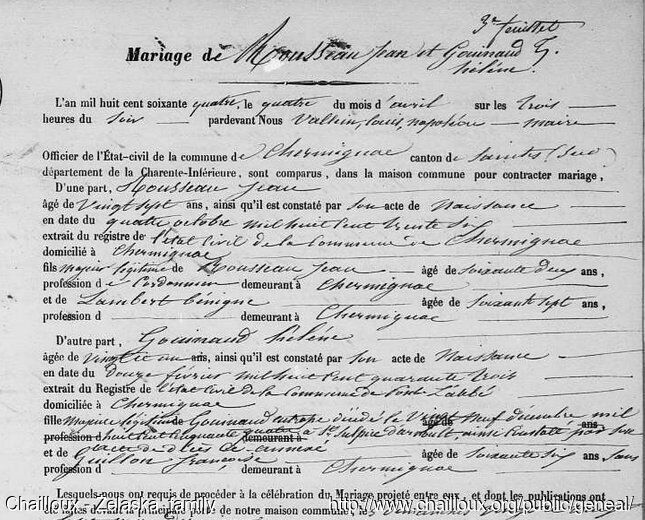 3e feuillet
Mariage de Rousseau Jean et Gouinaud
hélène.
L'an mil huit cent soixante quatre, le quatre du mois d'avril sur les trois
heures du Soir pardevant Nous Vallein, Louis, napoléon maire
Officier de l'État-civil de la commune de Chermignac canton de Saintes (Sud)
département de la Charente-Inférieure, sont comparus, dans la maison commune pour contracter mariage,
D'une part, Rousseau Jean
âgé de Vingt sept ans, ainsi qu'il est constaté par son acte de Naissance
en date du quatre octobre mil huit cent trente six
extrait du registre de l'état Civil de la Commune de Chermignac
domicilié à Chermignac
fils majeur légitime de Rousseau Jean âgé de soixante deux ans,
profession de Cordonnier demeurant à Chermignac
et de Lambert bénigne âgée de soixante sept ans,
profession d demeurant à Chermignac
D'autre part, Gouinaud hélène
âgée de Vingt et un ans, ainsi qu'il est constaté par son acte de Naissance
en date du Douze février mil huit cent quarante trois
extrait du Registre de l'état civil de la Commune de Pont-Labbé
domiciliée à Chermignac
fille majeure légitime de Gouinaud eutrope décédé le Vingt Neuf décembre mil
profession d huit cent cinquante quatre demeurant à St Sulpice d'arnoult, ainsi constaté par son
et de acte de décès ci-annexé
Guillon françoise âgée de soixante six ans
profession d demeurant à Chermignac
Lesquels nous ont requis de procéder à la célébration du Mariage projeté entre eux, et dont les publications ont
Chailloux - Zelaska family http://www.chailloux.org/public/geneal/